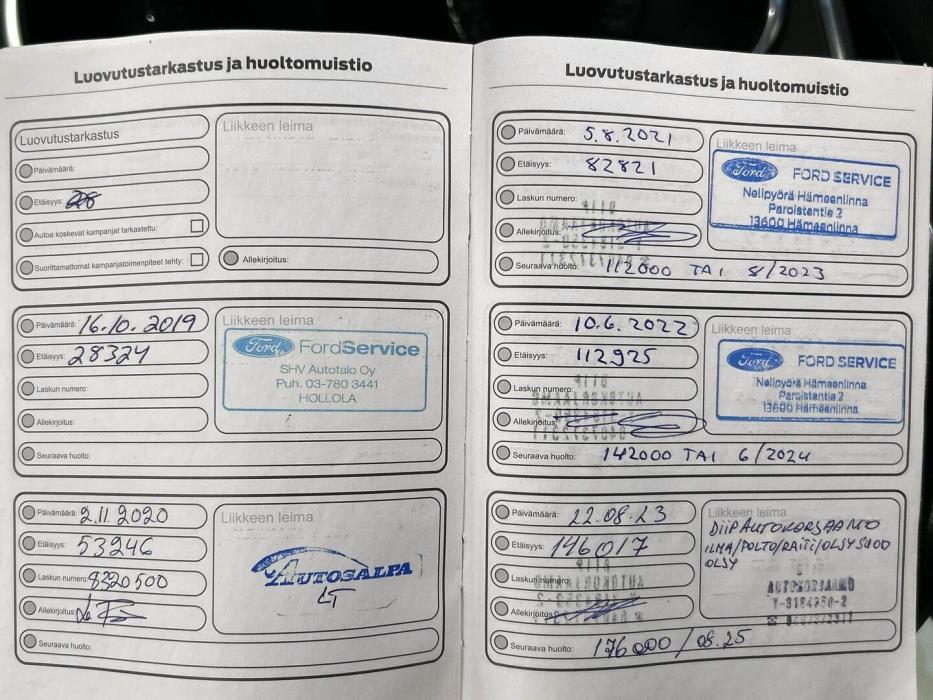 Luovutustarkastus ja huoltomuistio
Luovutustarkastus
Päivämäärä:
Etäisyys:
Autoa koskevat kampanjat tarkastettu:
Suorittamattomat kampanjatoimenpiteet tehty:
Liikkeen leima
Allekirjoitus:
Päivämäärä: 16.10.2019
Etäisyys: 28324
Laskun numero:
Allekirjoitus:
Seuraava huolto:
Liikkeen leima
Ford FordService
SHV Autotalo Oy
Puh. 03-780 3441
HOLLOLA
Päivämäärä: 2.11.2020
Etäisyys: 53246
Laskun numero: 8320500
Allekirjoitus:
Seuraava huolto:
Liikkeen leima
AUTOSALPA
LT
Luovutustarkastus ja huoltomuistio
Päivämäärä: 5.8.2021
Etäisyys: 82821
Laskun numero:
Allekirjoitus:
Seuraava huolto: 112000 TAI 8/2023
Liikkeen leima
Ford FORD SERVICE
Nelipyörä Hämeenlinna
Paroistentie 2
13600 Hämeenlinna
Päivämäärä: 10.6.2022
Etäisyys: 112925
Laskun numero:
Allekirjoitus:
Seuraava huolto: 142000 TAI 6/2024
Liikkeen leima
Ford FORD SERVICE
Nelipyörä Hämeenlinna
Paroistentie 2
13600 Hämeenlinna
Päivämäärä: 22.08.23
Etäisyys: 146017
Laskun numero:
Allekirjoitus:
Seuraava huolto: 176000/08.25
Liikkeen leima
DIIP AUTOKORJAAMO
ILMA/POLTO/RAITI/ÖLJYSUOD
ÖLJY
AUTOKORJAAMO
Y-3184350-2